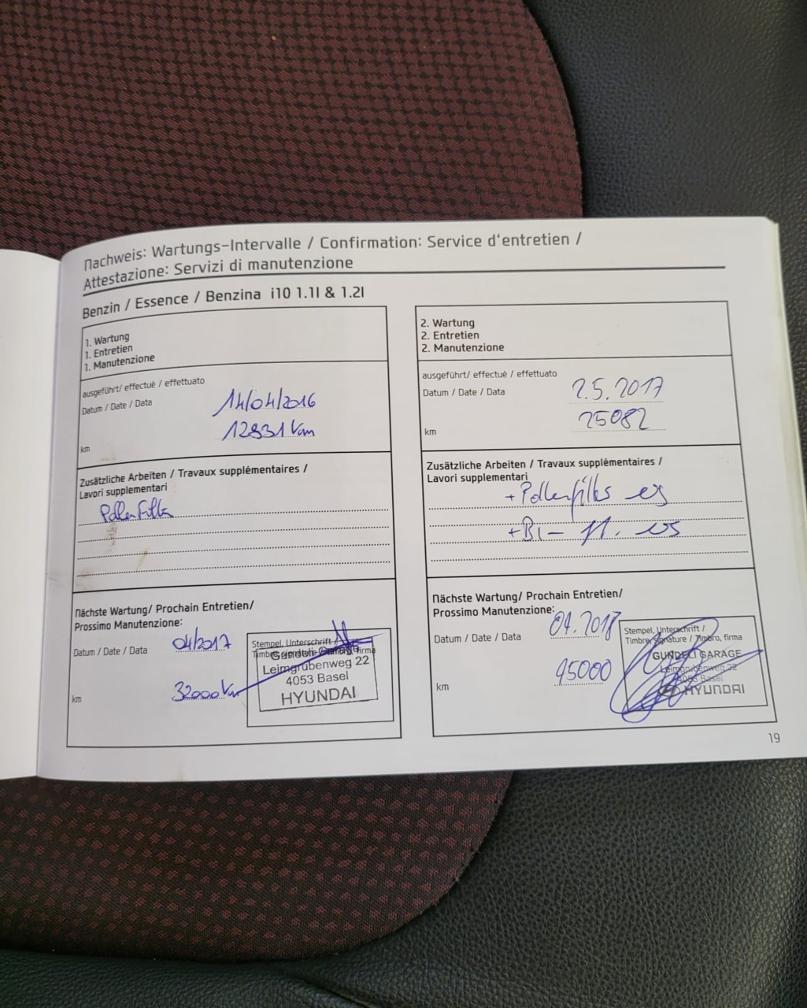 Nachweis: Wartungs-Intervalle / Confirmation: Service d'entretien /
Attestazione: Servizi di manutenzione
Benzin / Essence / Benzina i10 1.1l & 1.2l
1. Wartung
1. Entretien
1. Manutenzione
ausgeführt/ effectué / effettuato
Datum / Date / Data 14/04/2016
km 12831 km
Zusätzliche Arbeiten / Travaux supplémentaires /
Lavori supplementari
Pollenfilter
Nächste Wartung/ Prochain Entretien/
Prossimo Manutenzione:
Datum / Date / Data 04/2017
km 32000 km
Stempel, Unterschrift /
firma
Leimgrubenweg 22
4053 Basel
HYUNDAI
2. Wartung
2. Entretien
2. Manutenzione
ausgeführt/ effectué / effettuato
Datum / Date / Data 2.5.2017
km 25082
Zusätzliche Arbeiten / Travaux supplémentaires /
Lavori supplementari
+ Pollenfilter
Nächste Wartung/ Prochain Entretien/
Prossimo Manutenzione:
Datum / Date / Data
km
Stempel, Unterschrift /
Timbre, Signature / Timbro, firma
GARAGE
HYUNDAI
19